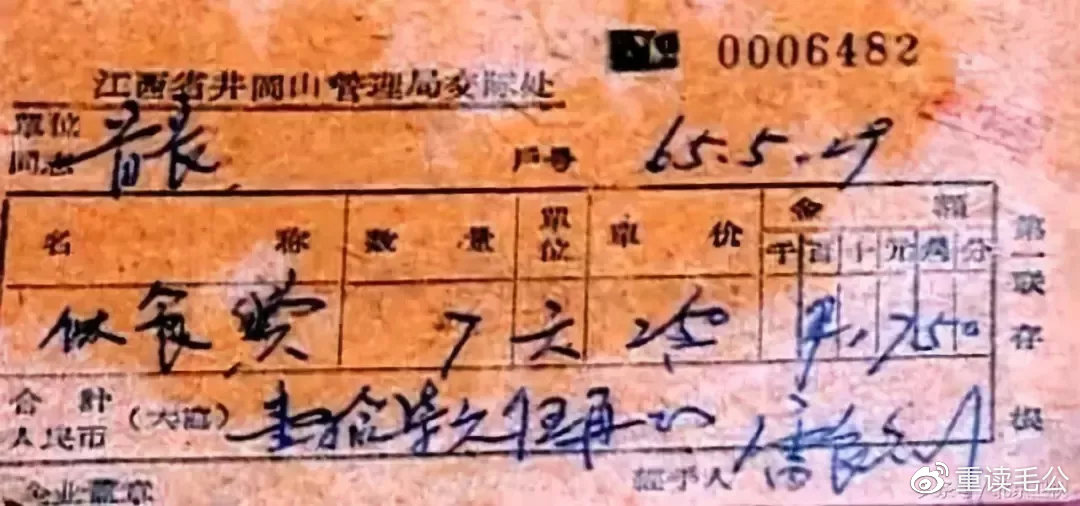 № 0006482
江西省井岡山管理局交际处
單位
同志 首長 戶号 65.5.29
名 称 數 量 單位 單 价 金 額
千 百 十 元 角 分
伙食費 7 天 250 ¥ 1750
合計
人民币 (大寫) 壹拾柒元
經手人
企业蓋章
第一联存根
重读毛公